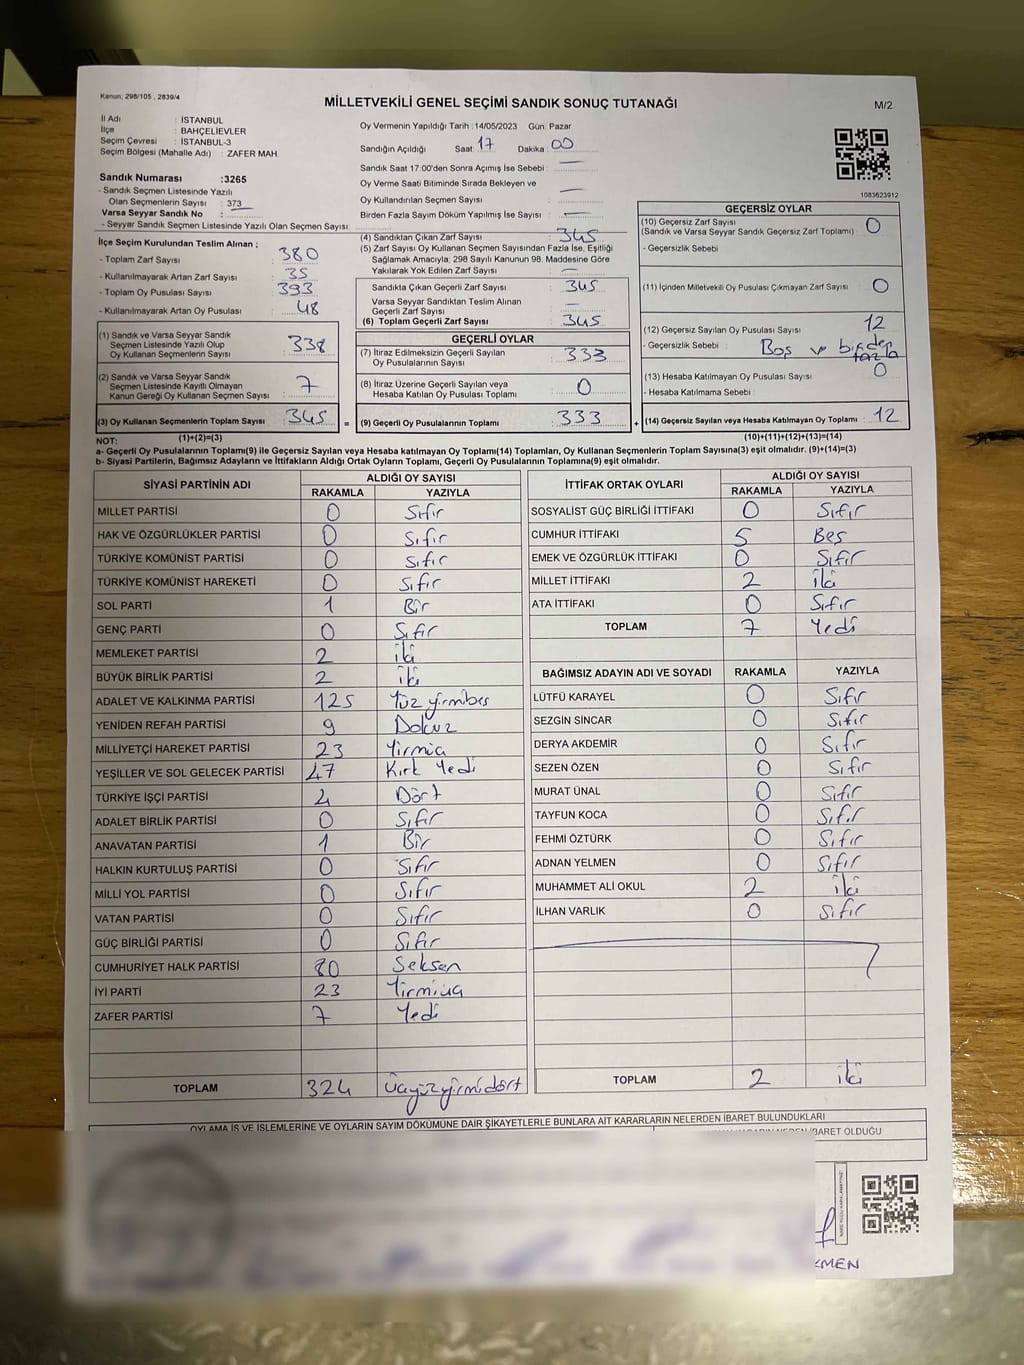 Kanun: 298/105 , 2839/4
MİLLETVEKİLİ GENEL SEÇİMİ SANDIK SONUÇ TUTANAĞI
M/2
İl Adı : İSTANBUL
İlçe : BAHÇELİEVLER
Seçim Çevresi : İSTANBUL-3
Seçim Bölgesi (Mahalle Adı) : ZAFER MAH.
Sandık Numarası :3265
- Sandık Seçmen Listesinde Yazılı
Olan Seçmenlerin Sayısı : 373
Varsa Seyyar Sandık No :
- Seyyar Sandık Seçmen Listesinde Yazılı Olan Seçmen Sayısı:
Oy Vermenin Yapıldığı Tarih :14/05/2023 Gün: Pazar
Sandığın Açıldığı Saat: 17 Dakika: 00
Sandık Saat 17:00'den Sonra Açımış İse Sebebi : —
Oy Verme Saati Bitiminde Sırada Bekleyen ve
Oy Kullandırılan Seçmen Sayısı : —
Birden Fazla Sayım Döküm Yapılmış İse Sayısı : —
1083623912
İlçe Seçim Kurulundan Teslim Alınan ;
- Toplam Zarf Sayısı : 380
- Kullanılmayarak Artan Zarf Sayısı : 35
- Toplam Oy Pusulası Sayısı : 393
- Kullanılmayarak Artan Oy Pusulası : 48
(1) Sandık ve Varsa Seyyar Sandık
Seçmen Listesinde Yazılı Olup
Oy Kullanan Seçmenlerin Sayısı : 338
(2) Sandık ve Varsa Seyyar Sandık
Seçmen Listesinde Kayıtlı Olmayan
Kanun Gereği Oy Kullanan Seçmen Sayısı : 7
(3) Oy Kullanan Seçmenlerin Toplam Sayısı : 345
(1)+(2)=(3)
(4) Sandıktan Çıkan Zarf Sayısı : 345
(5) Zarf Sayısı Oy Kullanan Seçmen Sayısından Fazla İse, Eşitliği
Sağlamak Amacıyla; 298 Sayılı Kanunun 98. Maddesine Göre
Yakılarak Yok Edilen Zarf Sayısı : —
Sandıkta Çıkan Geçerli Zarf Sayısı : 345
Varsa Seyyar Sandıktan Teslim Alınan
Geçerli Zarf Sayısı : —
(6) Toplam Geçerli Zarf Sayısı : 345
GEÇERLİ OYLAR
(7) İtiraz Edilmeksizin Geçerli Sayılan
Oy Pusulalarının Sayısı : 333
(8) İtiraz Üzerine Geçerli Sayılan veya
Hesaba Katılan Oy Pusulası Toplamı : 0
= (9) Geçerli Oy Pusulalarının Toplamı : 333
GEÇERSİZ OYLAR
(10) Geçersiz Zarf Sayısı : 0
(Sandık ve Varsa Seyyar Sandık Geçersiz Zarf Toplamı)
- Geçersizlik Sebebi :
(11) İçinden Milletvekili Oy Pusulası Çıkmayan Zarf Sayısı : 0
(12) Geçersiz Sayılan Oy Pusulası Sayısı : 12
- Geçersizlik Sebebi : Boş ve birden fazla
(13) Hesaba Katılmayan Oy Pusulası Sayısı : 0
- Hesaba Katılmama Sebebi :
+ (14) Geçersiz Sayılan veya Hesaba Katılmayan Oy Toplamı : 12
(10)+(11)+(12)+(13)=(14)
NOT:
a- Geçerli Oy Pusulalarının Toplamı(9) ile Geçersiz Sayılan veya Hesaba katılmayan Oy Toplamı(14) Toplamları, Oy Kullanan Seçmenlerin Toplam Sayısına(3) eşit olmalıdır. (9)+(14)=(3)
b- Siyasi Partilerin, Bağımsız Adayların ve İttifakların Aldığı Ortak Oyların Toplamı, Geçerli Oy Pusulalarının Toplamına(9) eşit olmalıdır.
SİYASİ PARTİNİN ADI ALDIĞI OY SAYISI
RAKAMLA YAZIYLA
MİLLET PARTİSİ 0 Sıfır
HAK VE ÖZGÜRLÜKLER PARTİSİ 0 Sıfır
TÜRKİYE KOMÜNİST PARTİSİ 0 Sıfır
TÜRKİYE KOMÜNİST HAREKETİ 0 Sıfır
SOL PARTİ 1 Bir
GENÇ PARTİ 0 Sıfır
MEMLEKET PARTİSİ 2 iki
BÜYÜK BİRLİK PARTİSİ 2 iki
ADALET VE KALKINMA PARTİSİ 125 Yüz yirmibeş
YENİDEN REFAH PARTİSİ 9 Dokuz
MİLLİYETÇİ HAREKET PARTİSİ 23 Yirmiüç
YEŞİLLER VE SOL GELECEK PARTİSİ 47 Kırk Yedi
TÜRKİYE İŞÇİ PARTİSİ 4 Dört
ADALET BİRLİK PARTİSİ 0 Sıfır
ANAVATAN PARTİSİ 1 Bir
HALKIN KURTULUŞ PARTİSİ 0 Sıfır
MİLLİ YOL PARTİSİ 0 Sıfır
VATAN PARTİSİ 0 Sıfır
GÜÇ BİRLİĞİ PARTİSİ 0 Sıfır
CUMHURİYET HALK PARTİSİ 80 Seksen
İYİ PARTİ 23 Yirmiüç
ZAFER PARTİSİ 7 Yedi
TOPLAM 324 üçyüzyirmidört
İTTİFAK ORTAK OYLARI ALDIĞI OY SAYISI
RAKAMLA YAZIYLA
SOSYALİST GÜÇ BİRLİĞİ İTTİFAKI 0 Sıfır
CUMHUR İTTİFAKI 5 Beş
EMEK VE ÖZGÜRLÜK İTTİFAKI 0 Sıfır
MİLLET İTTİFAKI 2 iki
ATA İTTİFAKI 0 Sıfır
TOPLAM 7 Yedi
BAĞIMSIZ ADAYIN ADI VE SOYADI RAKAMLA YAZIYLA
LÜTFÜ KARAYEL 0 Sıfır
SEZGİN SİNCAR 0 Sıfır
DERYA AKDEMİR 0 Sıfır
SEZEN ÖZEN 0 Sıfır
MURAT ÜNAL 0 Sıfır
TAYFUN KOCA 0 Sıfır
FEHMİ ÖZTÜRK 0 Sıfır
ADNAN YELMEN 0 Sıfır
MUHAMMET ALİ OKUL 2 iki
İLHAN VARLIK 0 Sıfır
TOPLAM 2 iki
OYLAMA İŞ VE İŞLEMLERİNE VE OYLARIN SAYIM DÖKÜMÜNE DAİR ŞİKAYETLERLE BUNLARA AİT KARARLARIN NELERDEN İBARET BULUNDUKLARI
İBARET OLDUĞU
KMEN